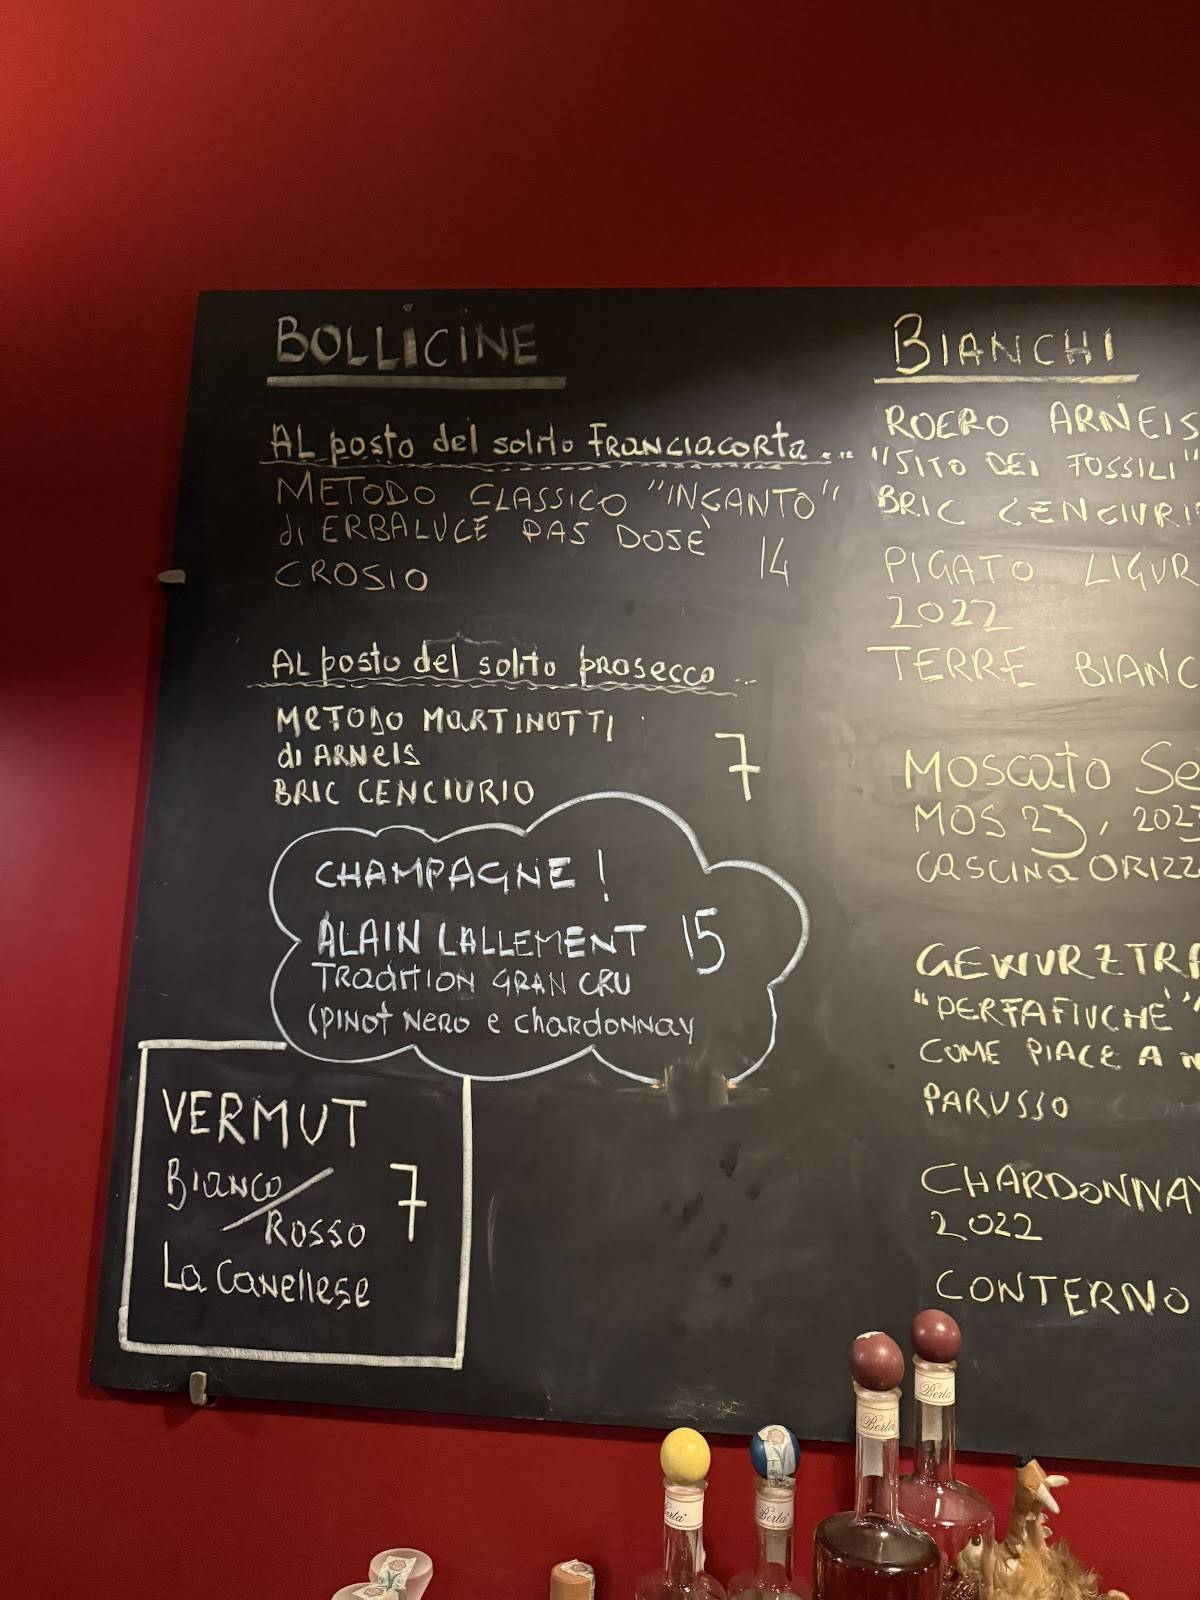 BOLLICINE
AL posto del solito FRANCIACORTA ...
METODO CLASSICO "INCANTO"
di ERBALUCE PAS DOSÈ
CROSIO 14
AL posto del solito prosecco ...
METODO MARTINOTTI
di ARNEIS
BRIC CENCIURIO 7
CHAMPAGNE!
ALAIN LALLEMENT 15
TRADITION GRAN CRU
(PINOT NERO e CHARDONNAY
VERMUT
BIANCO/
ROSSO 7
La Canellese
BIANCHI
ROERO ARNEIS
"SITO DEI FOSSILI"
BRIC CENCIURI
PIGATO LIGUR
2022
TERRE BIANC
MOSCATO Se
MOS 23, 2023
CASCINA ORIZZ
GEWURZTRA
"PERFAFIUCHÈ"
COME PIACE A
PARUSSO
CHARDONNAY
2022
CONTERNO
Berta
Berta
Berta
Berta